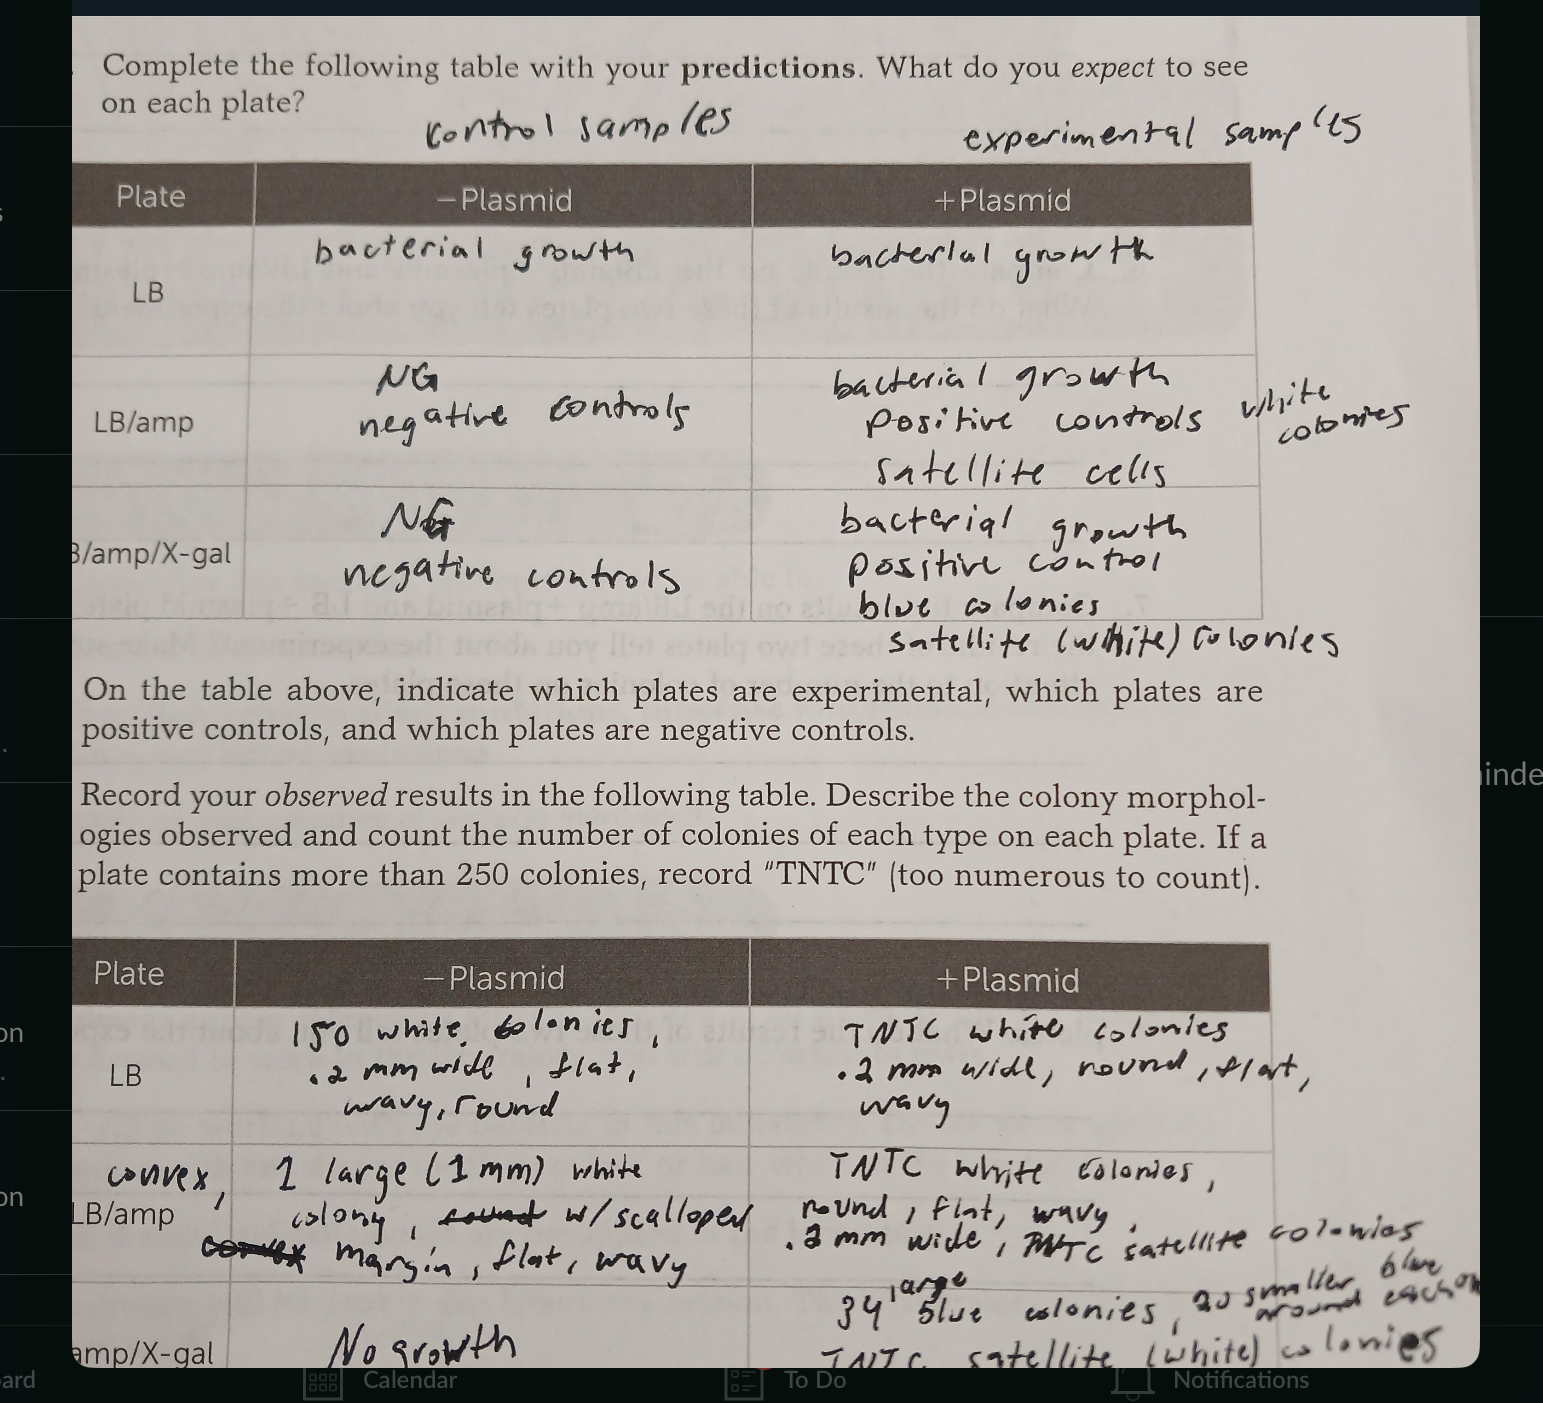 Complete the following table with your predictions. What do you expect to see
on each plate?
control samples
experimental samples
Plate
−Plasmid
+Plasmid
bacterial growth
bacterial growth
LB
NG
negative controls
LB/amp
bacterial growth
positive controls
white
colonies
satellite cells
NG
negative controls
B/amp/X-gal
bacterial growth
positive control
blue colonies
satellite (white) colonies
On the table above, indicate which plates are experimental, which plates are
positive controls, and which plates are negative controls.
Record your observed results in the following table. Describe the colony morphol-
ogies observed and count the number of colonies of each type on each plate. If a
plate contains more than 250 colonies, record "TNTC" (too numerous to count).
Plate
−Plasmid
+Plasmid
LB
150 white colonies,
.2 mm wide, flat,
wavy, round
TNTC white colonies
.2 mm wide, round, flat,
wavy
convex,
LB/amp
1 large (1 mm) white
colony, round w/scalloped
convex margin, flat, wavy
TNTC white colonies,
round, flat, wavy,
.2 mm wide, TNTC satellite colonies
amp/X-gal
No growth
34 large blue colonies, 20 smaller blue
around each
TNTC satellite (white) colonies
inde
on
on
ard
Calendar
To Do
Notifications